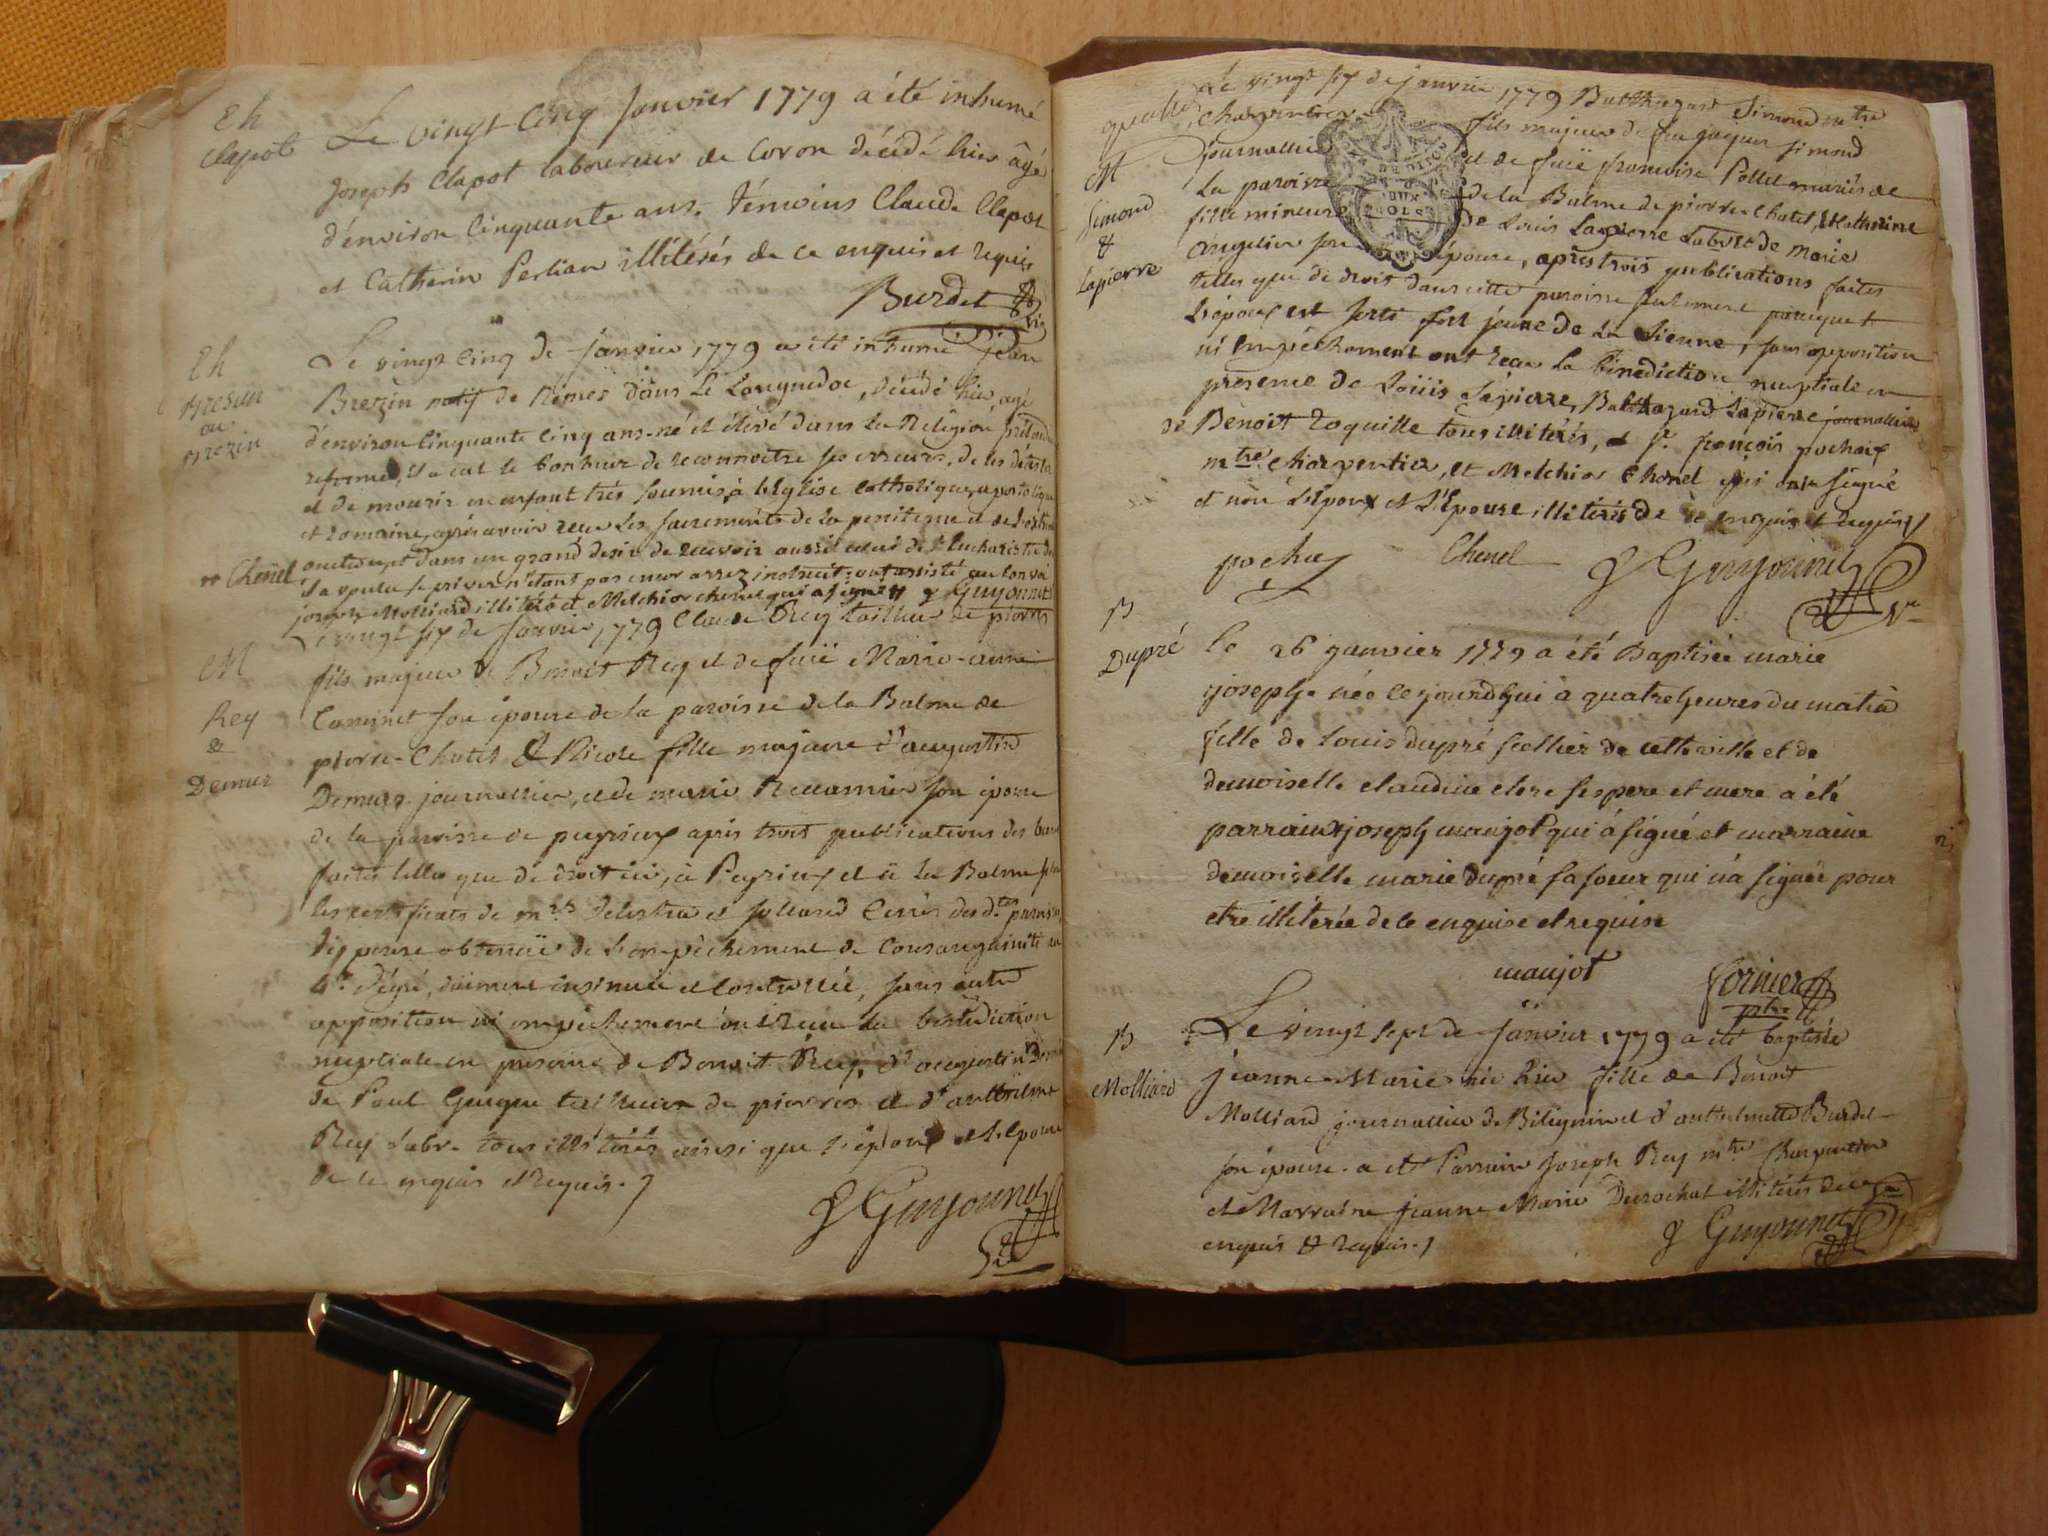 Eh
Clapot
Le vingt Cinq Janvier 1779 a été inhumé
Joseph Clapot laboureur de Coron décédé hier âgé
d'environ Cinquante ans. témoins Claude Clapot
et Catherin Perlian illitérés de ce enquis et requis
Burdet
Eh
Bresun
ou
Brezin
Le vingt Cinq de janvier 1779 a été inhumé jean
Brezin natif de Nîmes dans Le Languedoc, décédé hier agé
d'environ Cinquante Cinq ans né et élevé dans la Religion prétendue
reformée, il a eut le bonheur de reconnoitre ses erreurs, de les détester
et de mourir en enfant très soumis à l'Eglise Catholique, apostolique
et romaine, après avoir reçu Les sacrements de la penitence et de l'extreme
Chenel
onction, et dans un grand desir de recevoir aussi celui de l'Eucharistie dont
il a voulu se priver n'etant pas encor assez instruit. ont assisté au convoi
joseph Molliard illitéré et Melchior chenel qui a signé Guyonnet
M
Rey
&
Demur
Le vingt six de Janvier 1779 Claude Rey tailleur de pierres
fils majeur de Benoit Rey et de fuë Marie-anne
Caminet son épouse de la paroisse de la Balme de
pierre-Chatel & Nicole fille majeure d'augustin
Demur journallier, et de marie Recamier son épouse
de la paroisse de peyrieux après trois publications des bans
faites telles que de droit ici, à Peyrieux et à La Balme selon
les certificats de mrs Delestra et Jolland Curés des dtes paroisses
dispense obtenuë de l'empêchement de Consanguinité au
4e dégré, duëment insinuée et Controllée, sans autre
opposition ni empêchement ont reçu la bénédiction
nuptiale en presence de Benoit Rey, d'augustin Demur
de Paul Guigue tailleur de pierres et d'anthelme
Rey Labr. tous illitérés ainsi que l'époux et l'épouse
de ce enquis et requis.
J Guyonnet
M
Simond
&
Lapierre
Le vingt six de janvier 1779 Balthazard Simond mtre
Charpentier fils majeur de feu jaques simond
journallier et de fuë françoise Pollet mariés de
La paroisse de la Balme de pierre-Chatel, & Catherine
fille mineure de Louis Lapierre Labr et de Marie
Angelier son épouse, après trois publications faites
telles que de droit dans cette paroisse seulement parceque
L'époux est sorti fort jeune de La Sienne, sans opposition
ni empêchement ont reçu La bénediction nuptiale en
présence de Loüis Lapierre, Balthazard Lapierre journallier
de Benoit Roquille tous illitérés, et Sr. françois pochaix
mtre Charpentier, et Melchior Chenel qui ont signé
et non L'époux et L'épouse illitérés de ce enquis et requis
pochaix Chenel J Guyonnet
B
Dupré
le 26 janvier 1779 a été Baptisée marie
josephe née ce jourd'hui a quatre heures du matin
fille de louis dupré sellier de cette ville et de
demoiselle claudine clere ses pere et mere a été
parrain joseph maujot qui a signé et marraine
demoiselle marie dupré sa soeur qui n'a signée pour
etre illiterée de ce enquise et requise
maujot fornier
ptre
B
Molliard
Le vingt sept de janvier 1779 a été baptisée
jeanne-Marie née hier fille de Benoit
Molliard journallier de Billignin et d'anthelmette Burdet
son épouse. a été Parrain Joseph Rey mtre Charpentier
et Marraine jeanne Marie Durochat illitérés de ce
enquis & requis.
J Guyonnet